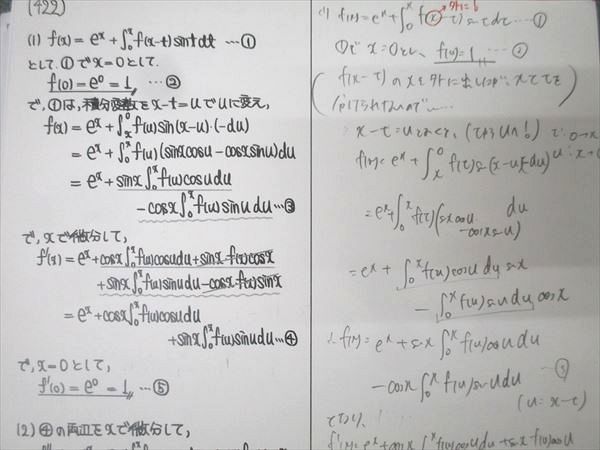 (422)
(1) f(x) = e^x + ∫_0^x f(x-t) sint dt …①
として、①でx=0として、
f(0) = e^0 = 1 …②
で、①は、積分変数をx-t=uでuに変え、
f(x) = e^x + ∫_x^0 f(u) sin(x-u)·(-du)
= e^x + ∫_0^x f(u)(sinx cosu - cosx sinu)du
= e^x + sinx ∫_0^x f(u) cosu du
- cosx ∫_0^x f(u) sinu du …③
で、xで微分して、
f'(x) = e^x + cosx ∫_0^x f(u) cosu du + sinx·f(x) cosx
+ sinx ∫_0^x f(u) sinu du - cosx·f(x) sinx
= e^x + cosx ∫_0^x f(u) cosu du
+ sinx ∫_0^x f(u) sinu du …④
で、x=0として、
f'(0) = e^0 = 1 …⑤
(2) ④の両辺をxで微分して、
f(x) = e^x + ∫_0^x f(x-t) sint dt …①
①でx=0とし、f(0)=1 …②
x-t=u
f(x) = e^x + ∫_x^0 f(t) s(x-u)(-du)
= e^x + ∫_0^x f(t)(sx cosu - cosx su) du
= e^x + ∫_0^x f(u) cosu du sx
- ∫_0^x f(u) su du cosx
∴ f(x) = e^x + sx ∫_0^x f(u) cosu du
- cosx ∫_0^x f(u) su du …③
(u = x-t)
f'(x) = e^x + cosx ∫_0^x f(u) cosu du + sx f(x) cosx